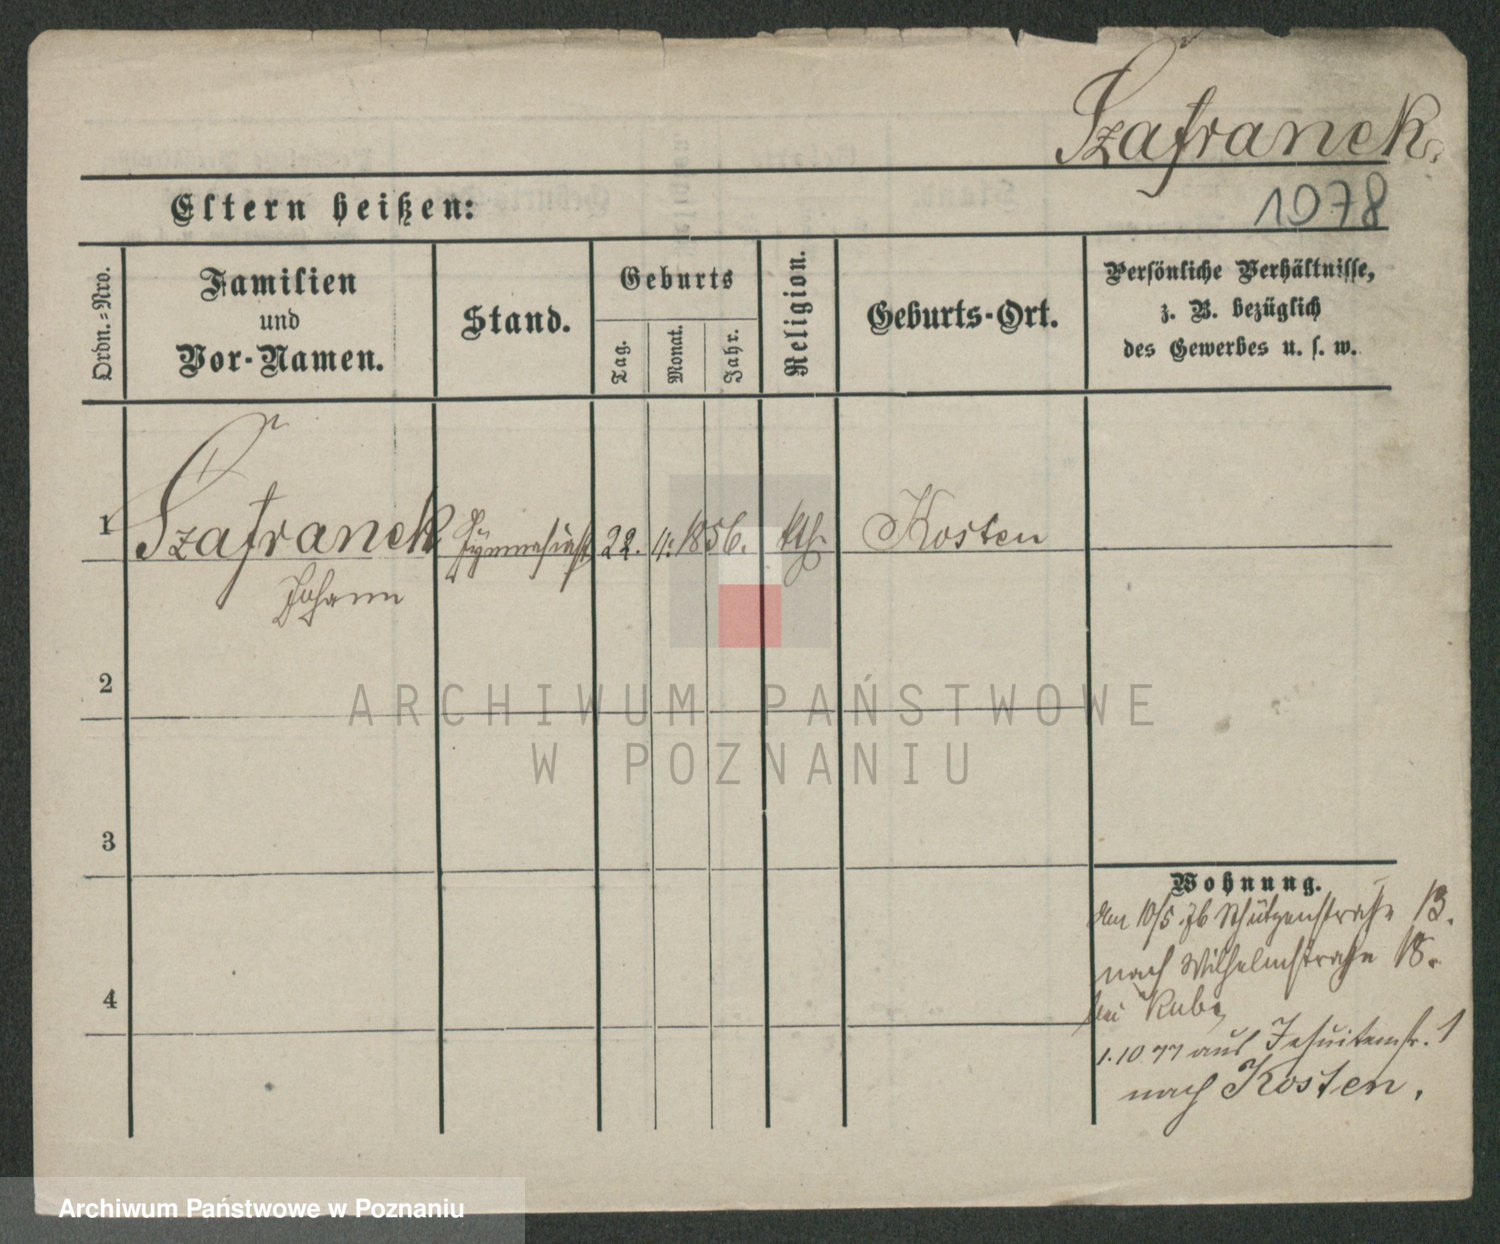 Szafranek.
1078
Eltern heißen:
Ordn.-Nro.
Familien
und
Vor-Namen.
Stand.
Geburts
Tag.
Monat.
Jahr.
Religion.
Geburts-Ort.
Persönliche Verhältnisse,
z. B. bezüglich
des Gewerbes u. s. w.
1 Szafranek Gymnasiast 22. 4. 1856. kth. Kosten
Johann
2
ARCHIWUM PAŃSTWOWE
W POZNANIU
3
Wohnung.
Am 10/5. 76 Schützenstraße 13.
nach Wilhelmstraße 18.
4
bei
1.10 77 aus Jesuitenstr. 1
nach Kosten.
Archiwum Państwowe w Poznaniu